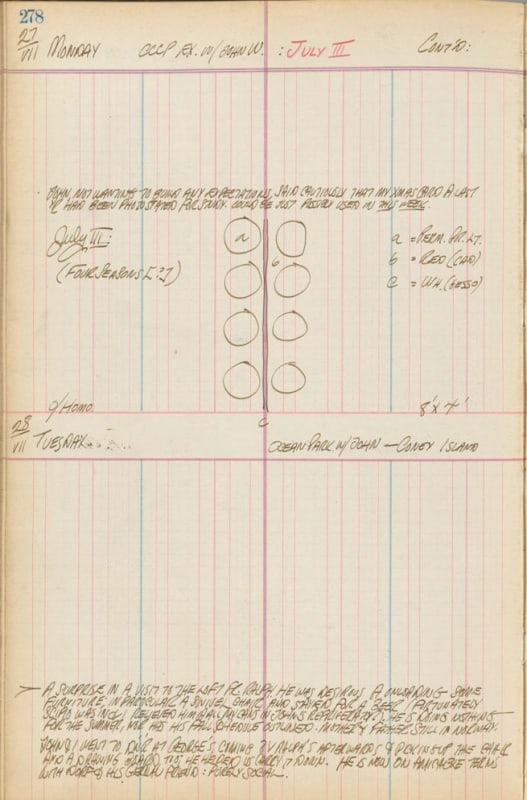 278
27
VII MONDAY OCCP EX. W/ JOHN W. : JULY III CONT'D:
JOHN NOT WANTING TO BUILD ANY EXPECTATIONS, SAID CAUTIOUSLY THAT MY XMAS CARD A LAST
YR HAD BEEN PHOTOSTATED FOR STUDY. COULD BE JUST POSSIBLY USED IN THIS WEEK.
July III:
(FOUR SEASONS [?])
a
b
a = PERM. GR. LT.
b = RED (CAD)
C = WH. (GESSO)
O/HOMO.
8' x 4'
C
28
VII TUESDAY
OCEAN PARK W/ JOHN — CONEY ISLAND
A SURPRISE IN A VISIT TO THE LOFT FR. RALPH HE WAS DESIROUS A UNLOADING SOME
FURNITURE, IN PARTICULAR A SWIVEL CHAIR AND STAYED FOR A BEER (FORTUNATELY
WAS IN) RELIEVED HIM A CANS IN JOHN'S REFRIGERATOR). HE IS DOING NOTHING
FOR THE SUMMER, NOR HAS HIS FALL SCHEDULE OUTLINED. MOTHER & FATHER STILL IN NORWAY.
JOHN & I WENT TO DINR AT GEORGE'S, COMING BY RALPH'S AFTERWARDS & PICKING UP THE CHAIR
AND A DRAWING BOARD TOO, HE HELPED US CARRY IT DOWN. HE IS NOW ON AMICABLE TERMS
WITH & HIS FRIEND: PURELY SOCIAL.